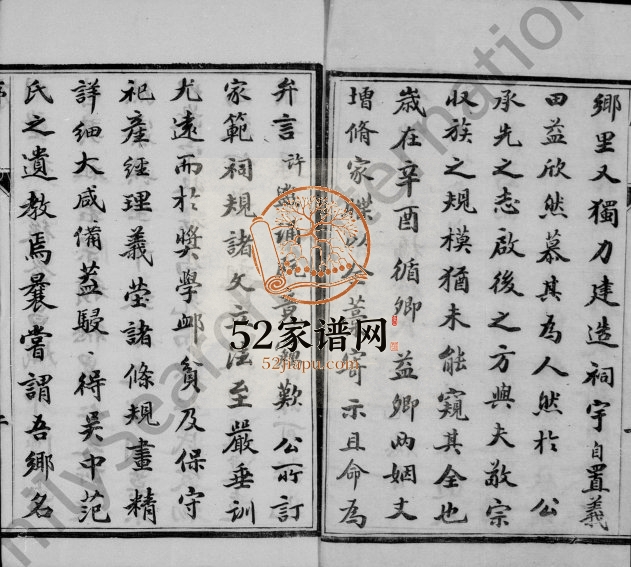 鄉里又獨力建造祠宇自置義
田益欣然慕其為人然於 公
承先之志啟後之方與夫敬宗
收族之規模猶未能窺其全也
歲在辛酉循卿 益卿兩姻丈
增脩家牒以全 寄示且命為
弁言許 歎 公所訂
家範祠規諸 法至嚴垂訓
尤遠而於獎學卹貧及保守
祀產經理義塋諸條規畫精
詳細大咸備葢駸駸得吳中范
氏之遺教焉曩嘗謂吾鄉名
52家谱网
52jiapu.com